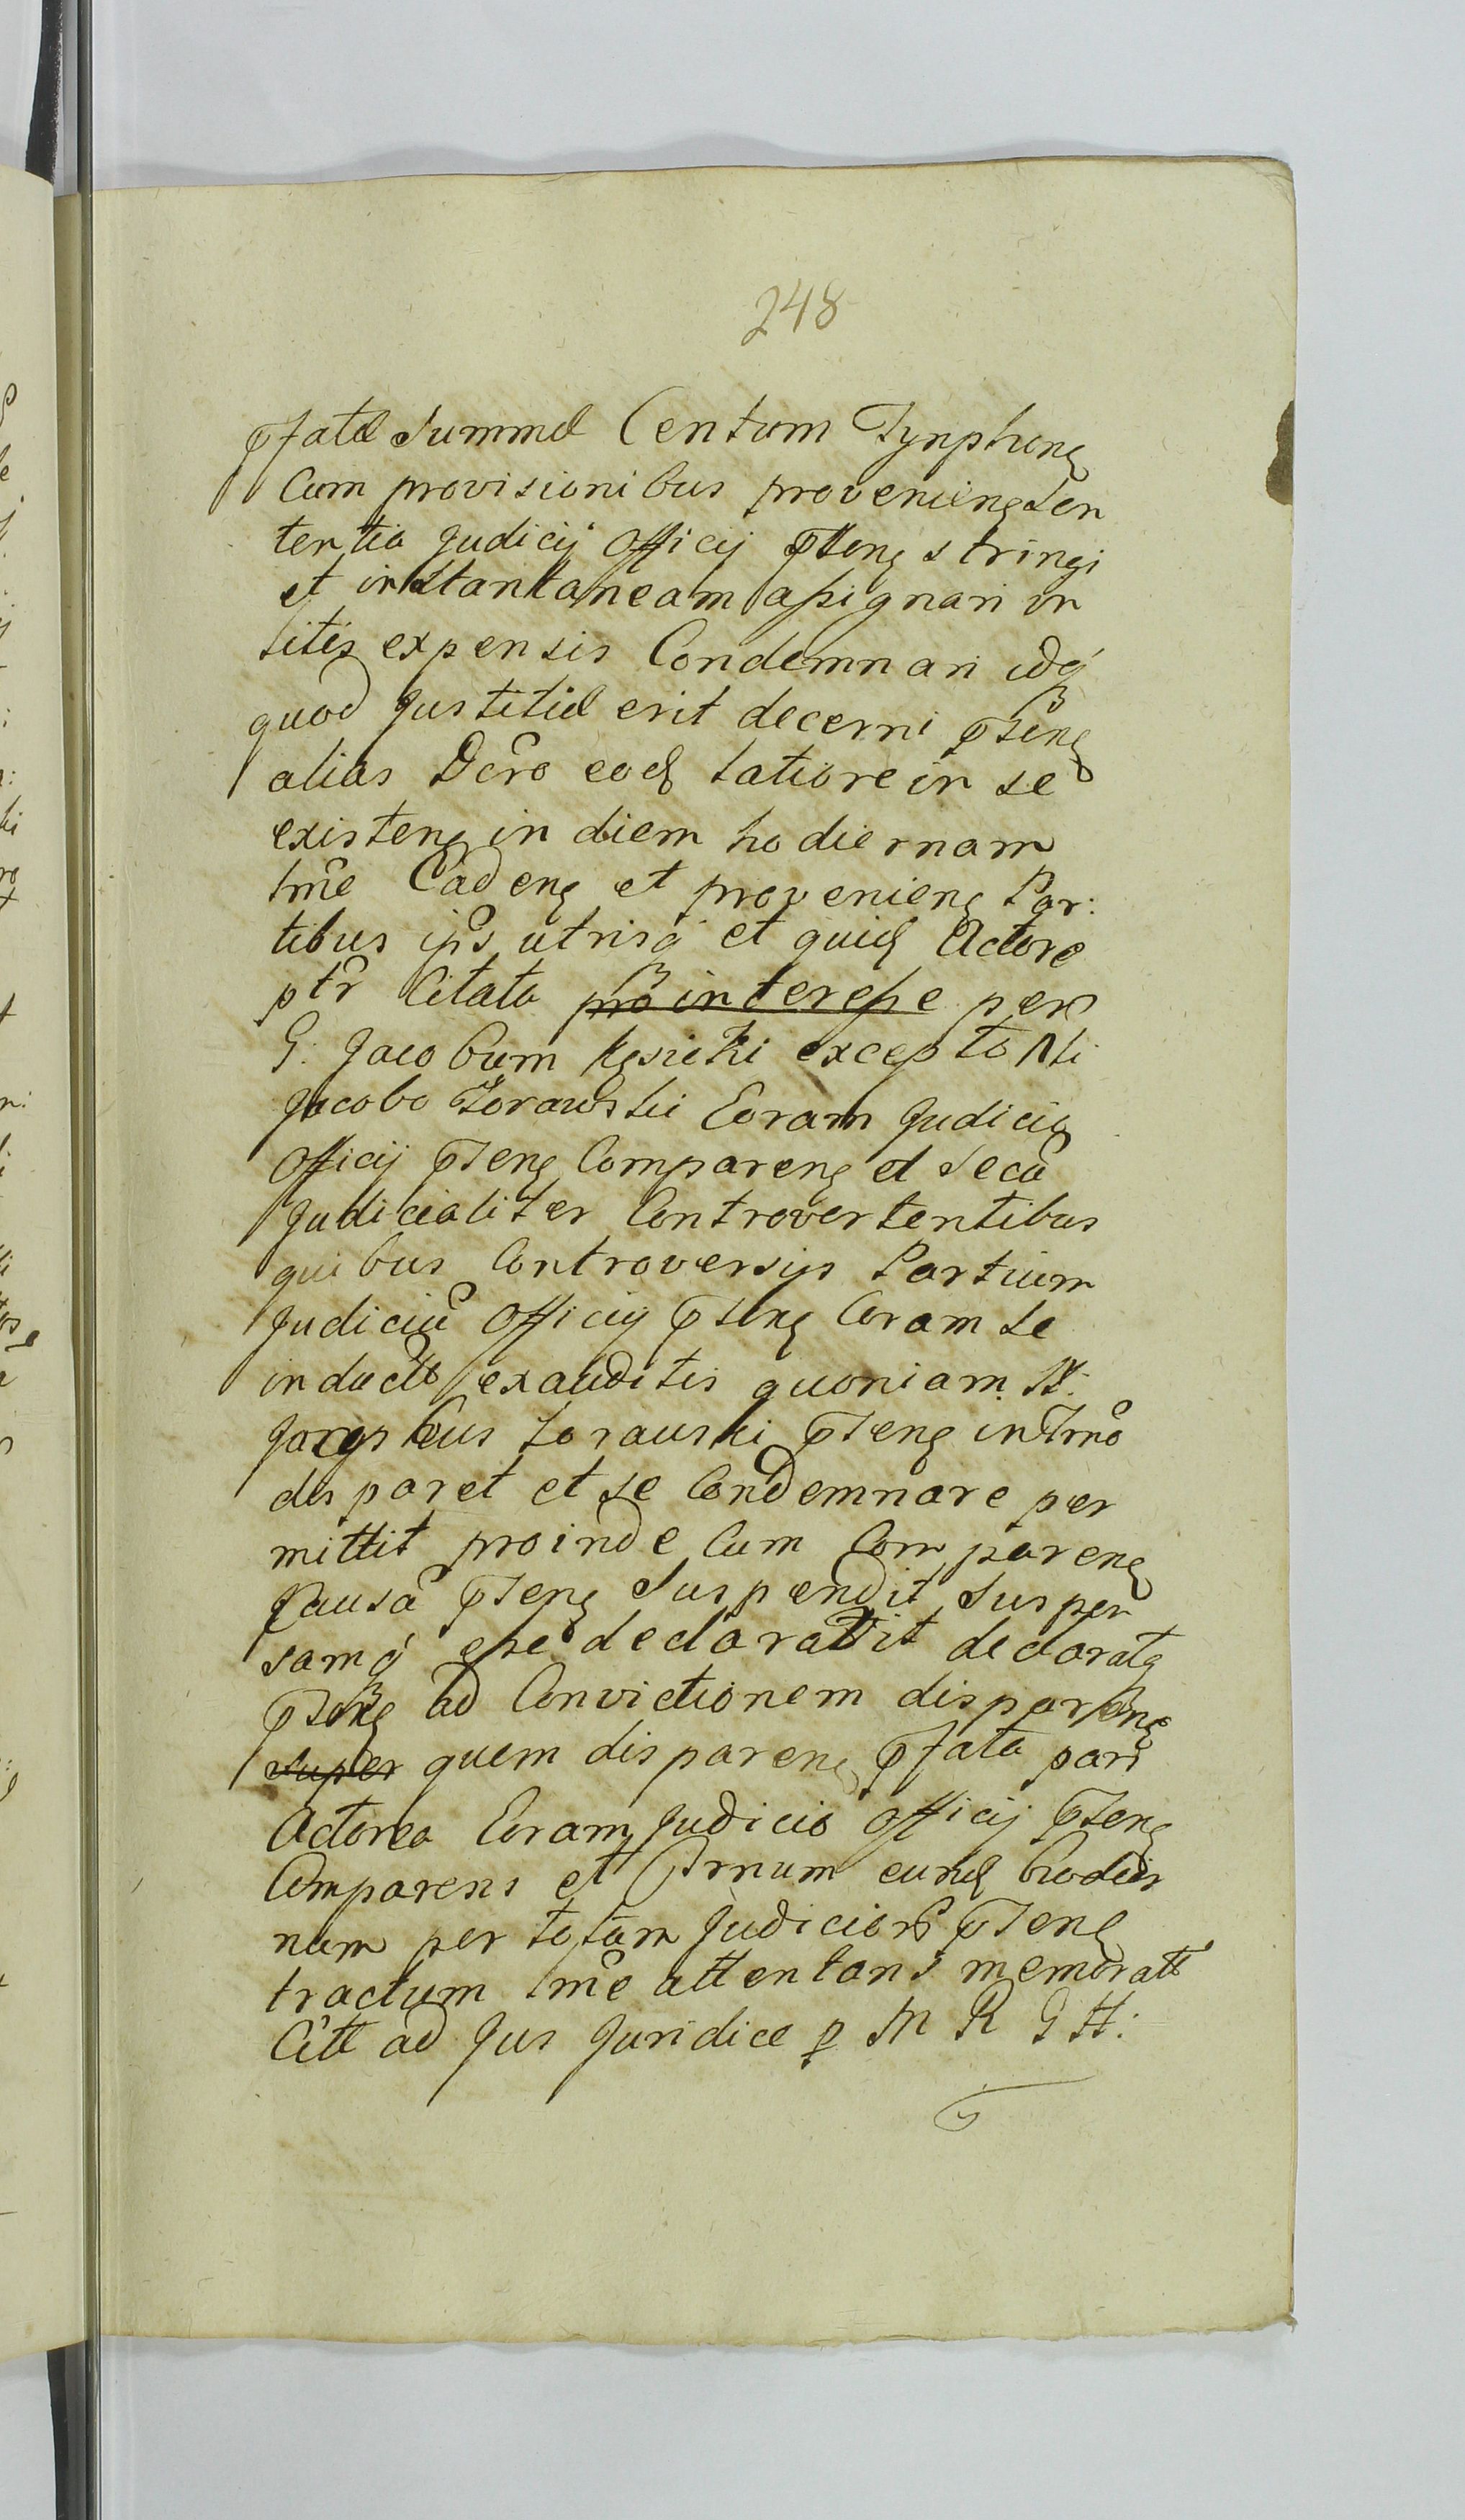 248
pfatæ Summæ Centum Tynphon
Cum provisionibus provenien Sen
tentia Judicij Officij pñten stringi
et instantaneam assignari in
litis expensis Condemnari idq
quod Justitiæ erit decerni pñten
alias Dcro eod latiore in se
existen in diem hodiernam
tme Caden et provenien Par:
tibus ips utrisq et quid Actore
ptr Citato pro interesse per
G. Jacobum Kęsicki excepto Nli
Jacobo Zorawski Coram Judicio
Officij pñten Comparen et Secũ
Judicialiter Controvertentibus
quibus Controversijs Partium
Judiciũ Officij pñten Coram se
induct exauditis quoniam N:
Zorauski pñten in Trno
disparet et se Condemnare per
mittit proinde Cum Comparen
Causã pñten Suspendit Suspen
samq esse declaravit declarat
pñten ad Convictionem disparen
Super quem disparen pfata pars
Actorea Coram Judicio Officij pñten
Comparens et Trnum eund hodier
num per totum Judicior pñten
tractum tme attentans memoratt
Citt ad Jus Juridice p M R G H: